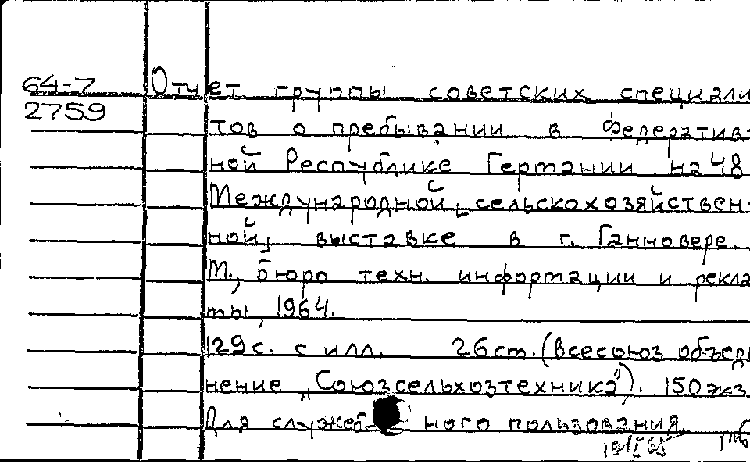 64-7 Отчет группы советских специали
2759
тов о пребывании в Федератив-
ной Республике Германии на 48
Международной, сельскохозяйствен-
ной, выставке в г. Ганновере.
М., бюро техн. информации и рекла
мы, 1964.
129с. с илл. 26см. (Всесоюз. объеди
нение "Союзсельхозтехника"). 150 экз.
Для служебного пользования